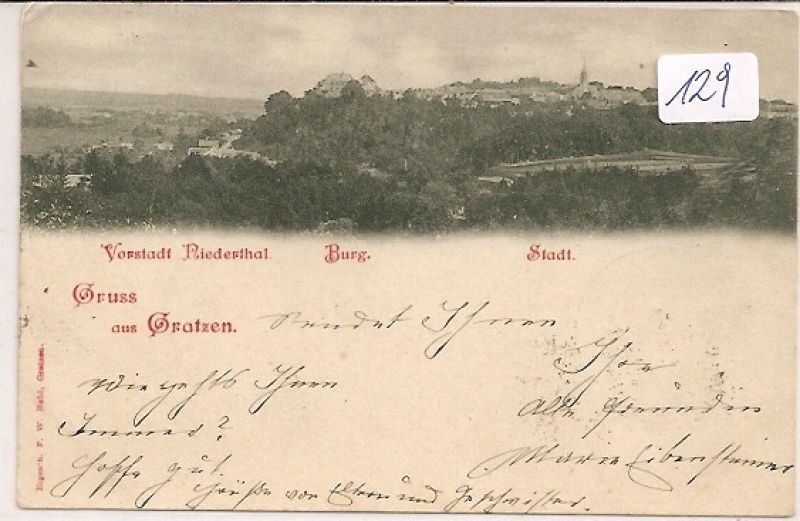 129
Vorstadt Niederthal. Burg. Stadt.
Gruss
aus Gratzen.
sendet Ihnen
Ihre
alte Freundin
Marie Eibensteiner
wie gehts Ihnen
Immer?
Hoffe gut.
Grüße von Eltern und Geschwister.
F. W. Gratzen.